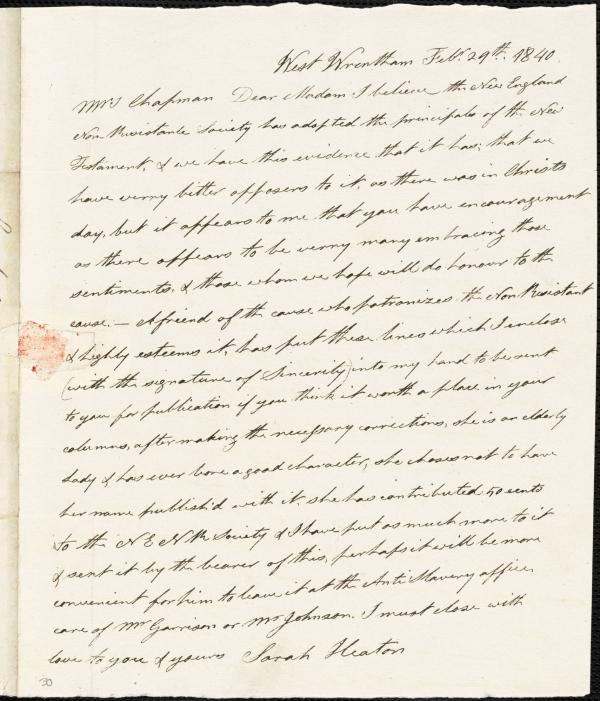 West Wrentham Feb.r 29th. 1840
Mrs Chapman Dear Madam I believe the New England
Non Resistance Society has adopted the principals of the New
Testament, & we have this evidence that it has; that we
have verry bitter opposers to it, as there was in Christs
day, but it appears to me that you have encouragement
as there appears to be verry many embracing those
sentiments, & those whom we hope will do honour to the
cause. — A friend of the cause who patronizes the Non Resistant
& highly esteems it, has put these lines which I inclose
(with the signature of Sincerity) into my hand to be sent
to you for publication if you think it worth a place in your
columns, after making the necessary corrections, she is an elderly
Lady & has ever bore a good character, she choses not to have
her name publish'd with it. she has contributed 50 cents
to the N E N R Society & I have put as much more to it
& sent it by the bearer of this, perhaps it will be more
convenient for him to leave it at the Anti Slavery office
care of Mr Garrison or Mr Johnson. I must close with
love to you & yours Sarah Heaton
30